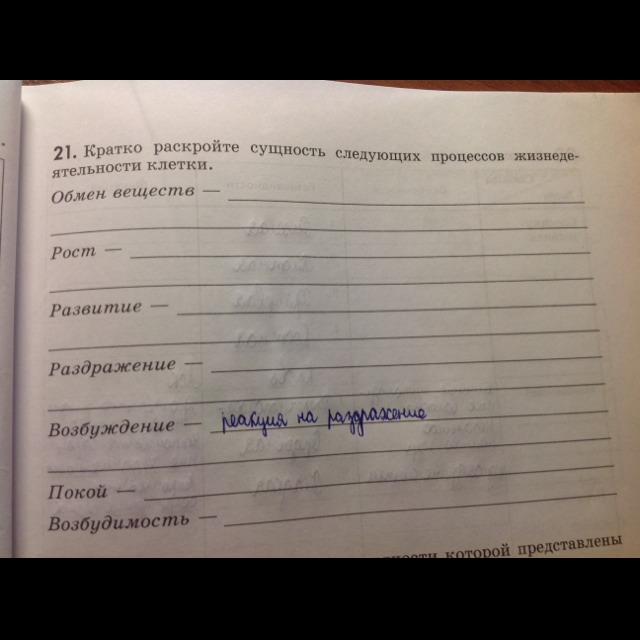 21. Кратко раскройте сущность следующих процессов жизнеде-
ятельности клетки.
Обмен веществ —
Рост —
Развитие —
Раздражение —
Возбуждение — реакция на раздражение
Покой —
Возбудимость —
которой представлены